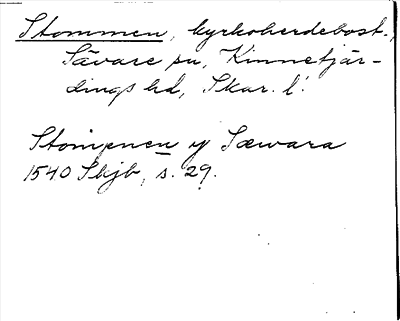 Stommen, kyrkoherdebost.,
Sävare sn, Kinnefjär-
dings hd, Skar. l.
Stompnen y Sæwara
1540 Skjb, s. 29.